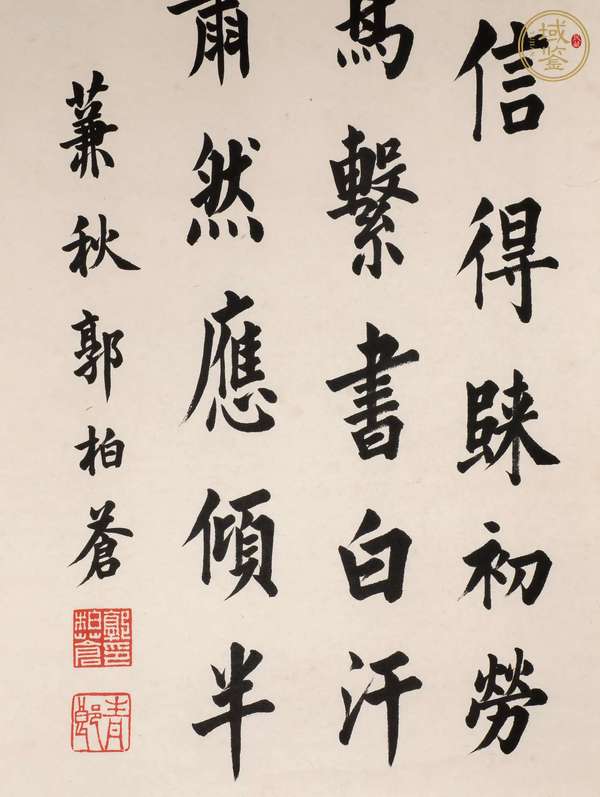 信得踈初勞
繫書白汗
然應傾半
蒹秋郭柏蒼
郭印柏蒼
青郎
域鉴